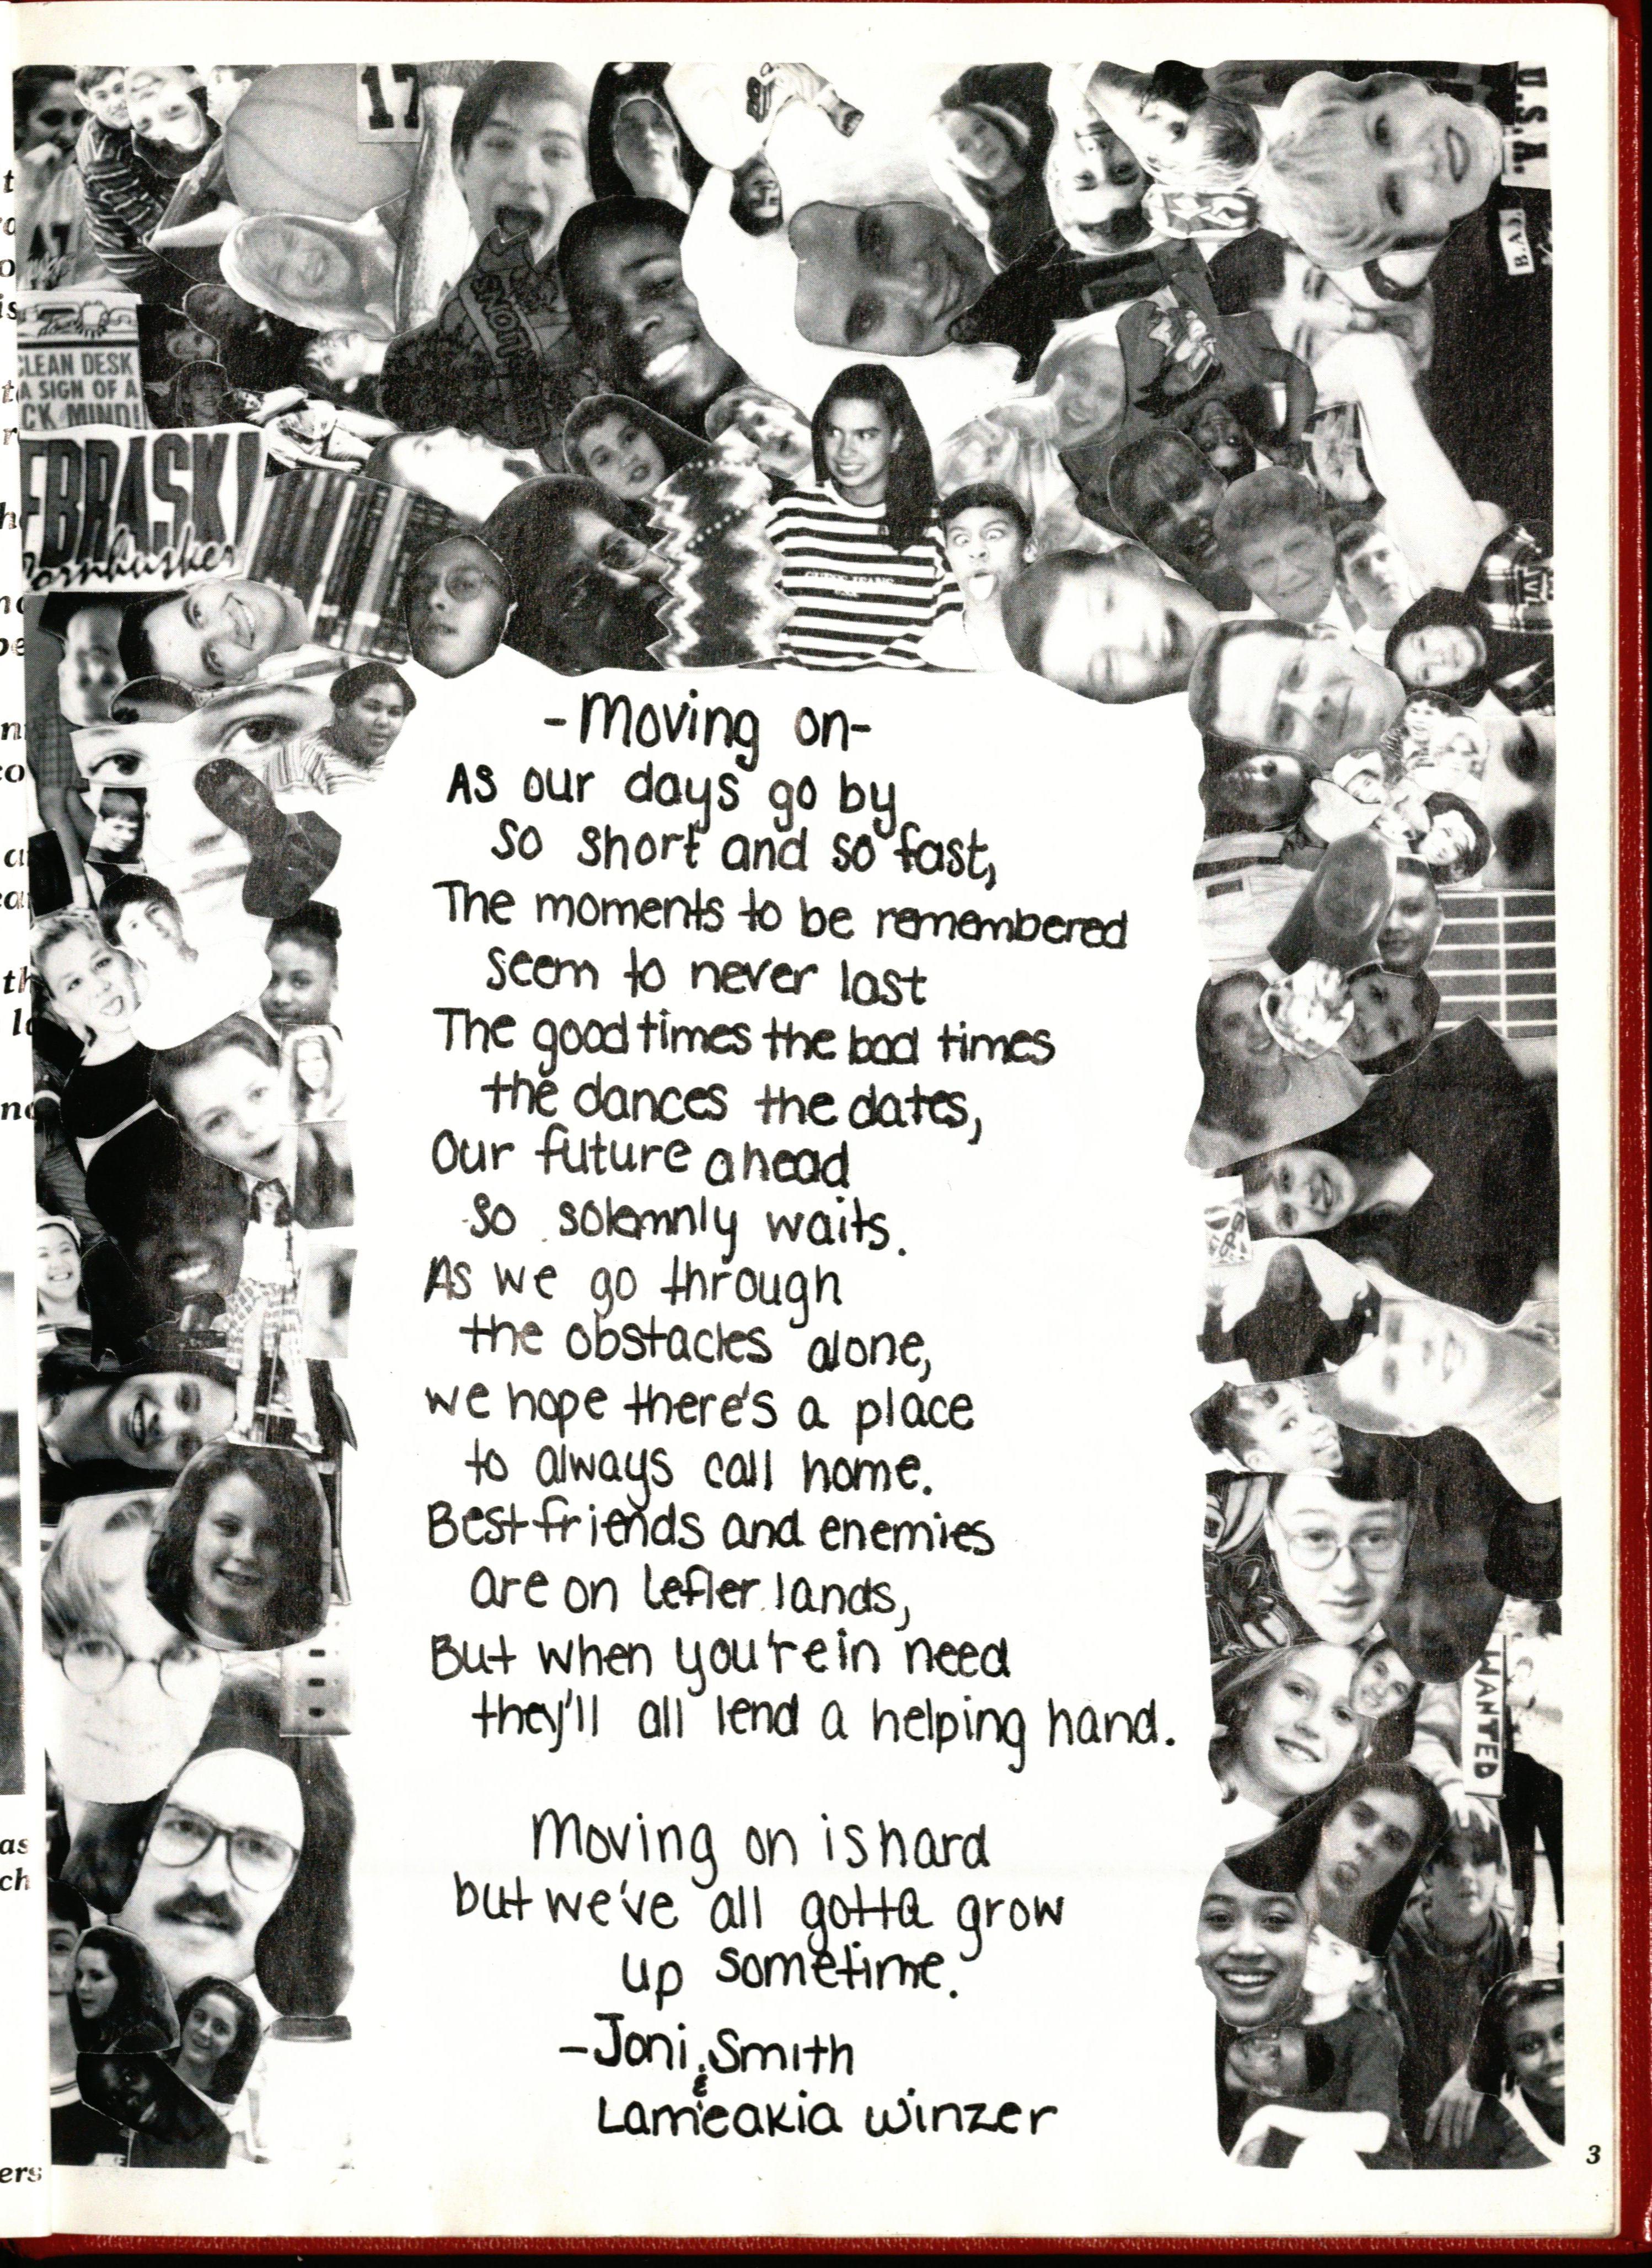 17
U.S.A.
BAD
SNOT
CLEAN DESK
A SIGN OF A
CK MIND!
EBRASK
Cornhusker
GUESS JEANS
-Moving on-
As our days go by
so short and so fast,
The moments to be remembered
seem to never last
The good times the bad times
the dances the dates,
Our future ahead
so solemnly waits.
As we go through
the obstacles alone,
we hope there's a place
to always call home.
Best friends and enemies
are on Lefler lands,
But when you're in need
they'll all lend a helping hand.
Moving on is hard
but we've all gotta grow
up sometime.
-Joni Smith
&
Lameakia Winzer
WANTED
as
ch
ers
3